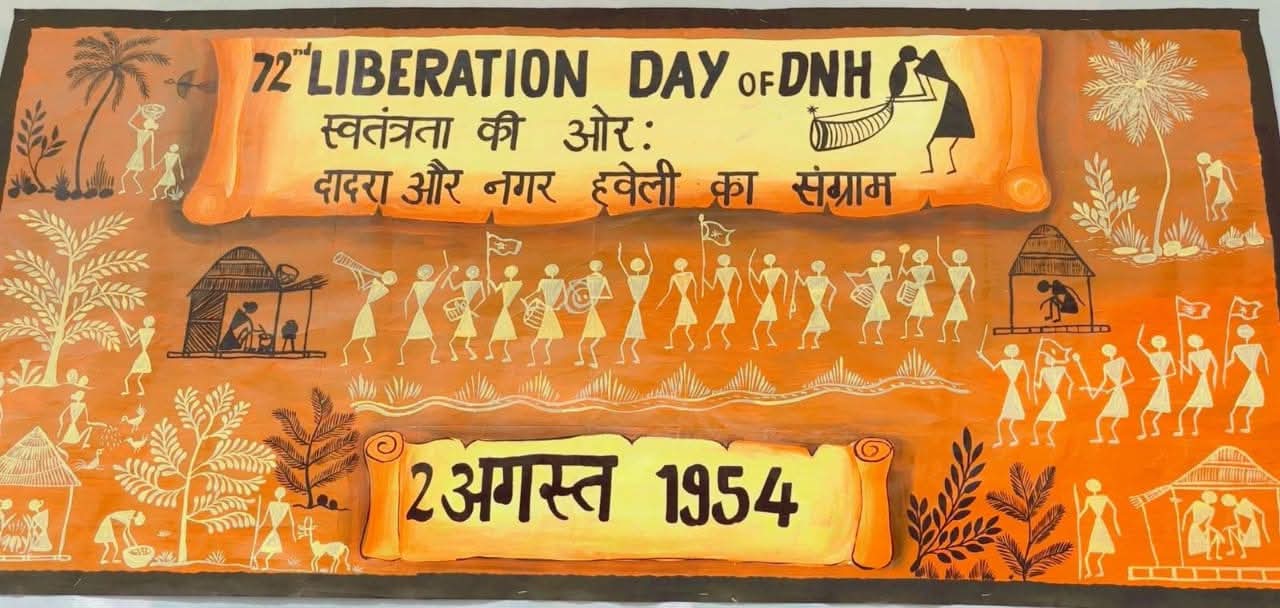 72nd LIBERATION DAY OF DNH
स्वतंत्रता की ओर:
दादरा और नगर हवेली का संग्राम
2 अगस्त 1954